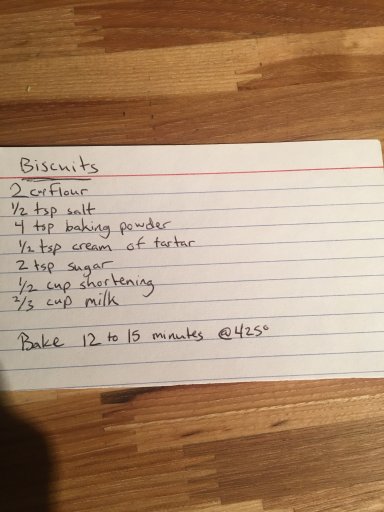 Biscuits
2 cup flour
½ tsp salt
4 tsp baking powder
½ tsp cream of tartar
2 tsp sugar
½ cup shortening
2/3 cup milk
Bake 12 to 15 minutes @425°